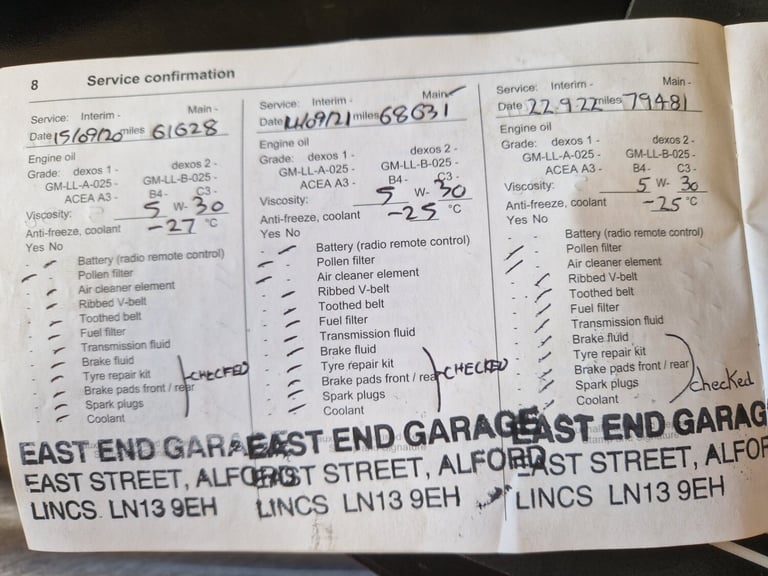 8 Service confirmation
Service: Interim - Main -
Date 15/09/20 miles 61628
Engine oil
Grade: dexos 1 - dexos 2 -
GM-LL-A-025 - GM-LL-B-025 -
ACEA A3 - B4- C3 -
Viscosity: 5 W- 30
Anti-freeze, coolant -27 °C
Yes No
Battery (radio remote control)
Pollen filter
Air cleaner element
Ribbed V-belt
Toothed belt
Fuel filter
Transmission fluid
Brake fluid
Tyre repair kit
Brake pads front / rear
Spark plugs
Coolant
CHECKED
EAST END GARAGE
EAST STREET, ALFORD
LINCS. LN13 9EH
Service: Interim - Main -
Date 14/09/21 miles 68631
Engine oil
Grade: dexos 1 - dexos 2 -
GM-LL-A-025 - GM-LL-B-025 -
ACEA A3 - B4- C3 -
Viscosity: 5 W- 30
Anti-freeze, coolant -25 °C
Yes No
Battery (radio remote control)
Pollen filter
Air cleaner element
Ribbed V-belt
Toothed belt
Fuel filter
Transmission fluid
Brake fluid
Tyre repair kit
Brake pads front / rear
Spark plugs
Coolant
CHECKED
EAST END GARAGE
EAST STREET, ALFORD
LINCS LN13 9EH
Service: Interim - Main -
Date 22.9.22 miles 79481
Engine oil
Grade: dexos 1 - dexos 2 -
GM-LL-A-025 - GM-LL-B-025 -
ACEA A3 - B4- C3 -
Viscosity: 5 W- 30
Anti-freeze, coolant -25 °C
Yes No
Battery (radio remote control)
Pollen filter
Air cleaner element
Ribbed V-belt
Toothed belt
Fuel filter
Transmission fluid
Brake fluid
Tyre repair kit
Brake pads front / rear
Spark plugs
Coolant
checked
EAST END GARAG
EAST STREET, ALFOR
LINCS LN13 9EH